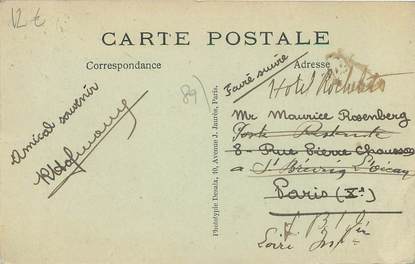 12 €
CARTE POSTALE
Correspondance
Adresse
Amical souvenir
89
Phototypie Desaix, 10, Avenue J. Jaurès, Paris.
Faire suivre
Hotel
Mr Maurice Rosenberg
Poste Restante
8 - Rue Pierre
a St
Paris (X
Loire Inf